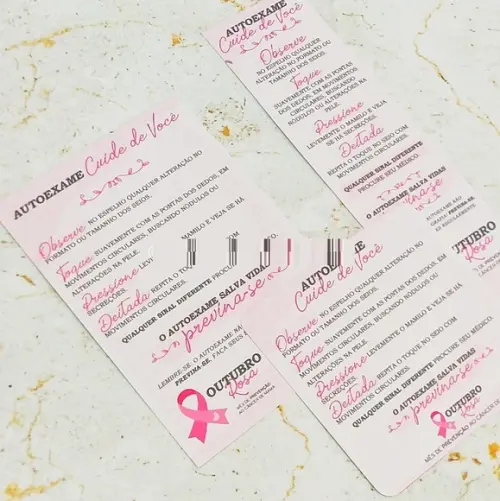 AUTOEXAME Cuide de Você
Observe NO ESPELHO QUALQUER ALTERAÇÃO NO
FORMATO OU TAMANHO DOS SEIOS.
Toque SUAVEMENTE COM AS PONTAS DOS DEDOS, EM
MOVIMENTOS CIRCULARES, BUSCANDO NÓDULOS OU
ALTERAÇÕES NA PELE.
Pressione LEVE MAMILO E VEJA SE HÁ
SECREÇÕES.
Deitada REPITA O TOQUE
MOVIMENTOS CIRCULARES.
QUALQUER SINAL DIFERENTE PROCURE
O AUTOEXAME SALVA VIDAS
previna-se
LEMBRE-SE: O AUTOEXAME
PREVINA-SE. FAÇA SEUS
OUTUBRO
Rosa
MÊS DE PREVENÇÃO
AO CÂNCER DE MAMA
AUTOEXAME
Cuide de Você
Observe
NO ESPELHO QUALQUER
ALTERAÇÃO NO FORMATO OU
TAMANHO DOS SEIOS.
Toque
SUAVEMENTE COM AS PONTAS
DOS DEDOS, EM MOVIMENTOS
CIRCULARES, BUSCANDO
NÓDULOS OU ALTERAÇÕES NA
PELE.
Pressione
LEVEMENTE O MAMILO E VEJA
SE HÁ SECREÇÕES.
Deitada
REPITA O TOQUE NO SEIO COM
MOVIMENTOS CIRCULARES.
QUALQUER SINAL DIFERENTE
PROCURE SEU MÉDICO.
O AUTOEXAME SALVA VIDAS
previna-se
OUTUBRO
Rosa
AUTOEXAME
Cuide de Você
Observe NO ESPELHO QUALQUER ALTERAÇÃO NO
FORMATO OU TAMANHO DOS SEIOS.
Toque SUAVEMENTE COM AS PONTAS DOS DEDOS, EM
MOVIMENTOS CIRCULARES, BUSCANDO NÓDULOS OU
ALTERAÇÕES NA PELE.
Pressione LEVEMENTE O MAMILO E VEJA SE HÁ
SECREÇÕES.
Deitada REPITA O TOQUE NO SEIO COM
MOVIMENTOS CIRCULARES.
QUALQUER SINAL DIFERENTE PROCURE SEU MÉDICO.
O AUTOEXAME SALVA VIDAS
previna-se
OUTUBRO
Rosa
MÊS DE PREVENÇÃO AO CÂNCER DE